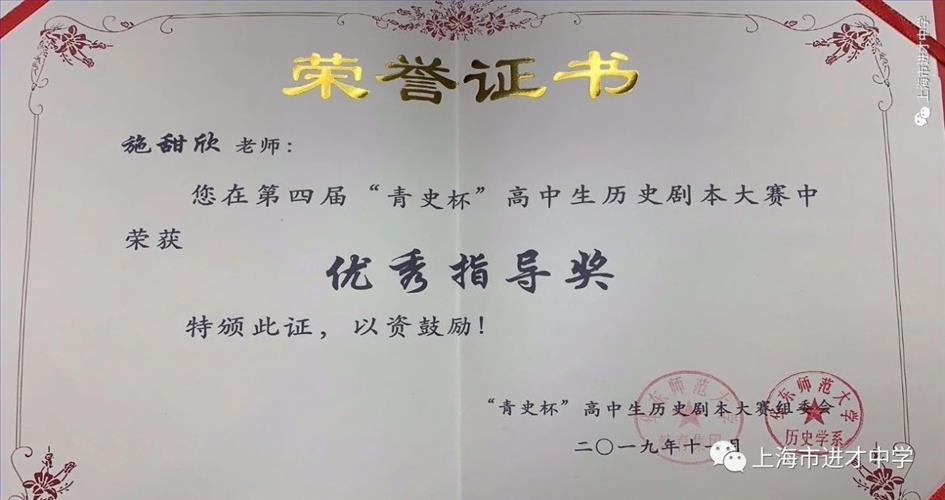 荣誉证书
施甜欣 老师：
您在第四届“青史杯”高中生历史剧本大赛中
荣获
优秀指导奖
特颁此证，以资鼓励！
“青史杯”高中生历史剧本大赛组委会
二〇一九年十一月
华东师范大学
历史学系
华东师范大学
上海市进才中学